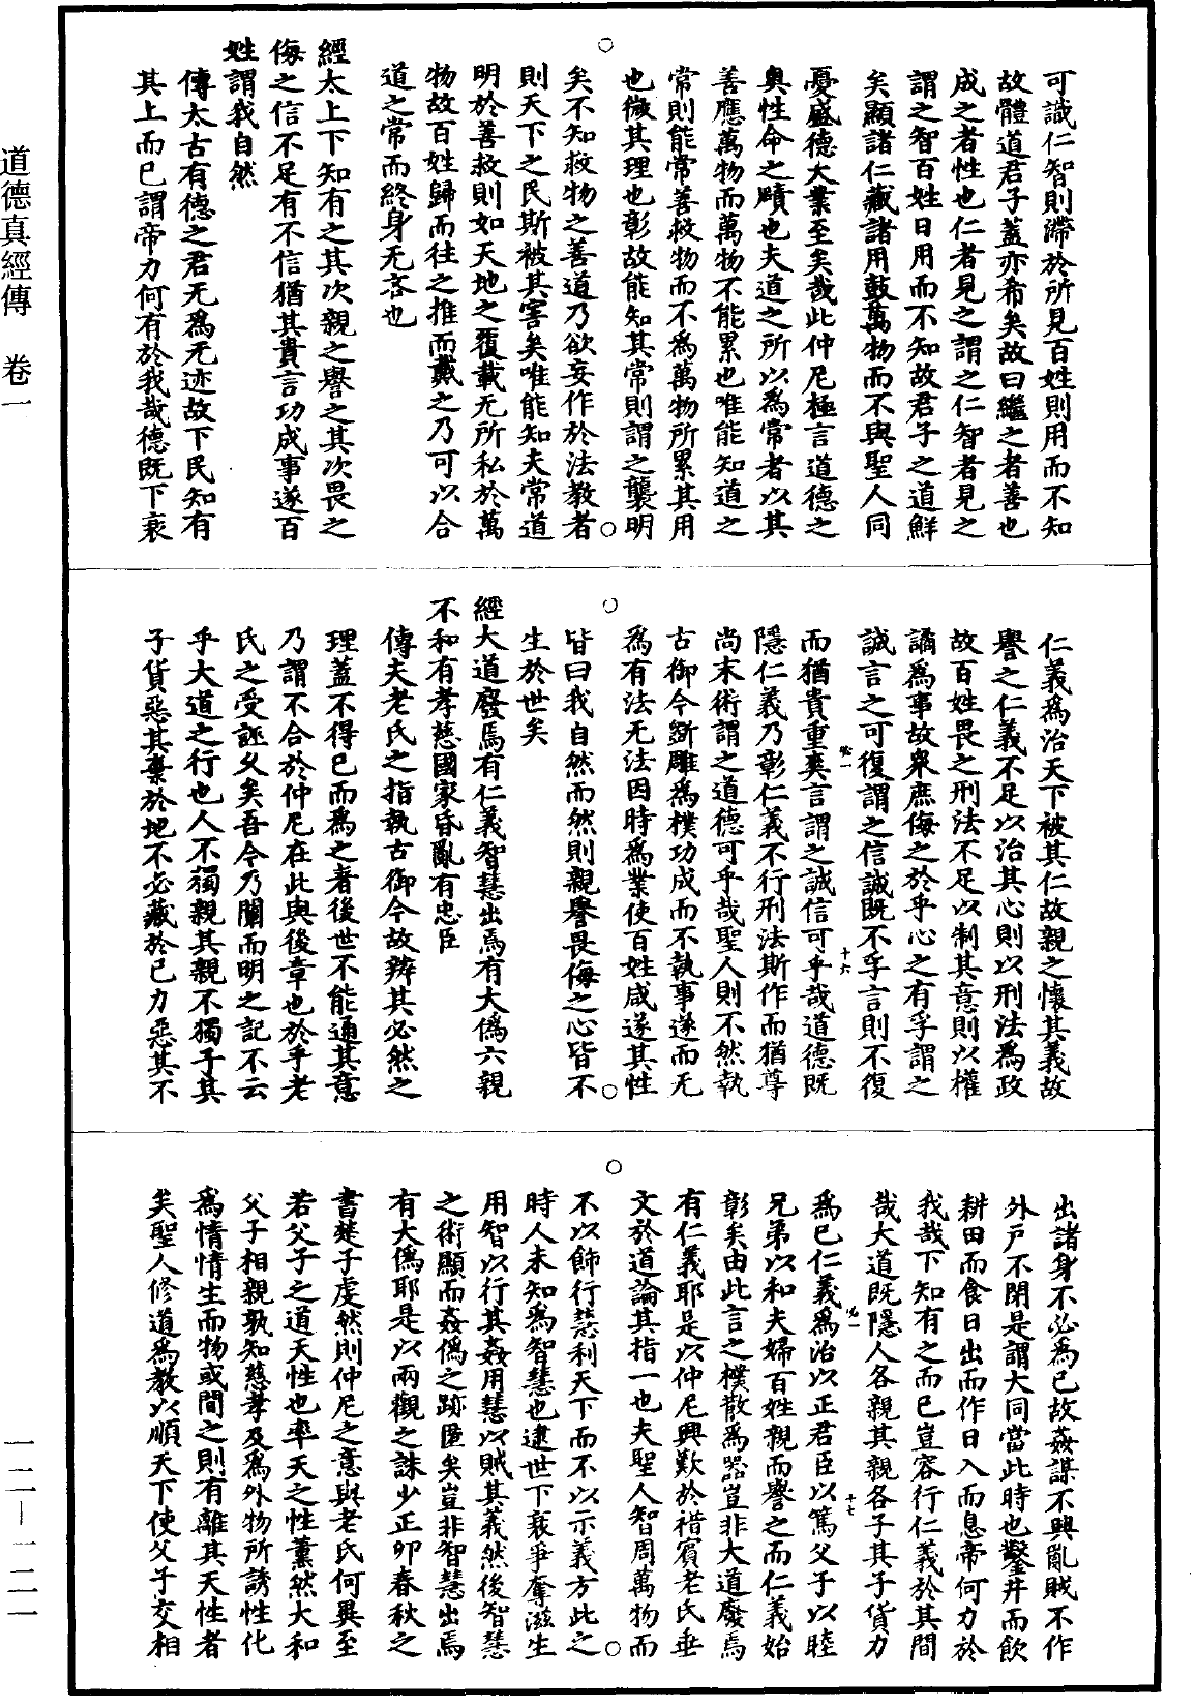 可識仁智則滯於所見百姓則用而不知
故體道君子蓋亦希矣故曰繼之者善也
成之者性也仁者見之謂之仁智者見之
謂之智百姓日用而不知故君子之道鮮
矣顯諸仁藏諸用鼓萬物而不與聖人同
憂盛德大業至矣哉此仲尼極言道德之
奧性命之賾也夫道之所以為常者以其
善應萬物而萬物不能累也唯能知道之
常則能常善救物而不為萬物所累其用
也微其理也彰故能知其常則謂之襲明
矣不知救物之善道乃欲妄作於法教者
則天下之民斯被其害矣唯能知夫常道
明於善救則如天地之覆載无所私於萬
物故百姓歸而往之推而戴之乃可以合
道之常而終身无吝也
經太上下知有之其次親之譽之其次畏之
侮之信不足有不信猶其貴言功成事遂百
姓謂我自然
傳太古有德之君无為无迹故下民知有
其上而已謂帝力何有於我哉德既下衰
仁義為治天下被其仁故親之懷其義故
譽之仁義不足以治其心則以刑法為政
故百姓畏之刑法不足以制其意則以權
譎為事故衆庶侮之於乎心之有孚謂之
誠言之可復謂之信誠既不孚言則不復
而猶貴重爽言謂之誠信可乎哉道德既
必一
十六
隱仁義乃彰仁義不行刑法斯作而猶尊
尚末術謂之道德可乎哉聖人則不然執
古御今斲雕為樸功成而不執事遂而无
為有法无法因時為業使百姓咸遂其性
皆曰我自然而然則親譽畏侮之心皆不
生於世矣
經大道廢焉有仁義智慧出焉有大偽六親
不和有孝慈國家昏亂有忠臣
傳夫老氏之指執古御今故辨其必然之
理蓋不得已而為之者後世不能通其意
乃謂不合於仲尼在此與後章也於乎老
氏之受誣久矣吾今乃闡而明之記不云
乎大道之行也人不獨親其親不獨子其
子貨惡其棄於地不必藏於己力惡其不
出諸身不必為己故姦謀不興亂賊不作
外戶不閉是謂大同當此時也鑿井而飲
耕田而食日出而作日入而息帝何力於
我哉下知有之而已豈容行仁義於其間
哉大道既隱人各親其親各子其子貨力
為己仁義為治以正君臣以篤父子以睦
必一
十七
兄弟以和夫婦百姓親而譽之而仁義始
彰矣由此言之樸散為器豈非大道廢焉
有仁義耶是以仲尼興歎於禇賓老氏垂
文於道論其指一也夫聖人智周萬物而
不以飾行慧利天下而不以示義方此之
時人未知為智慧也逮世下衰爭奪滋生
用智以行其姦用慧以賊其義然後智慧
之術顯而姦偽之跡匿矣豈非智慧出焉
有大偽耶是以兩觀之誅少正卯春秋之
書楚子虔然則仲尼之意與老氏何異至
若父子之道天性也率天之性薰然大和
父子相親孰知慈孝及為外物所誘性化
為情情生而物或間之則有離其天性者
矣聖人修道為教以順天下使父子交相
道德真經傳　卷一
一二—一二一